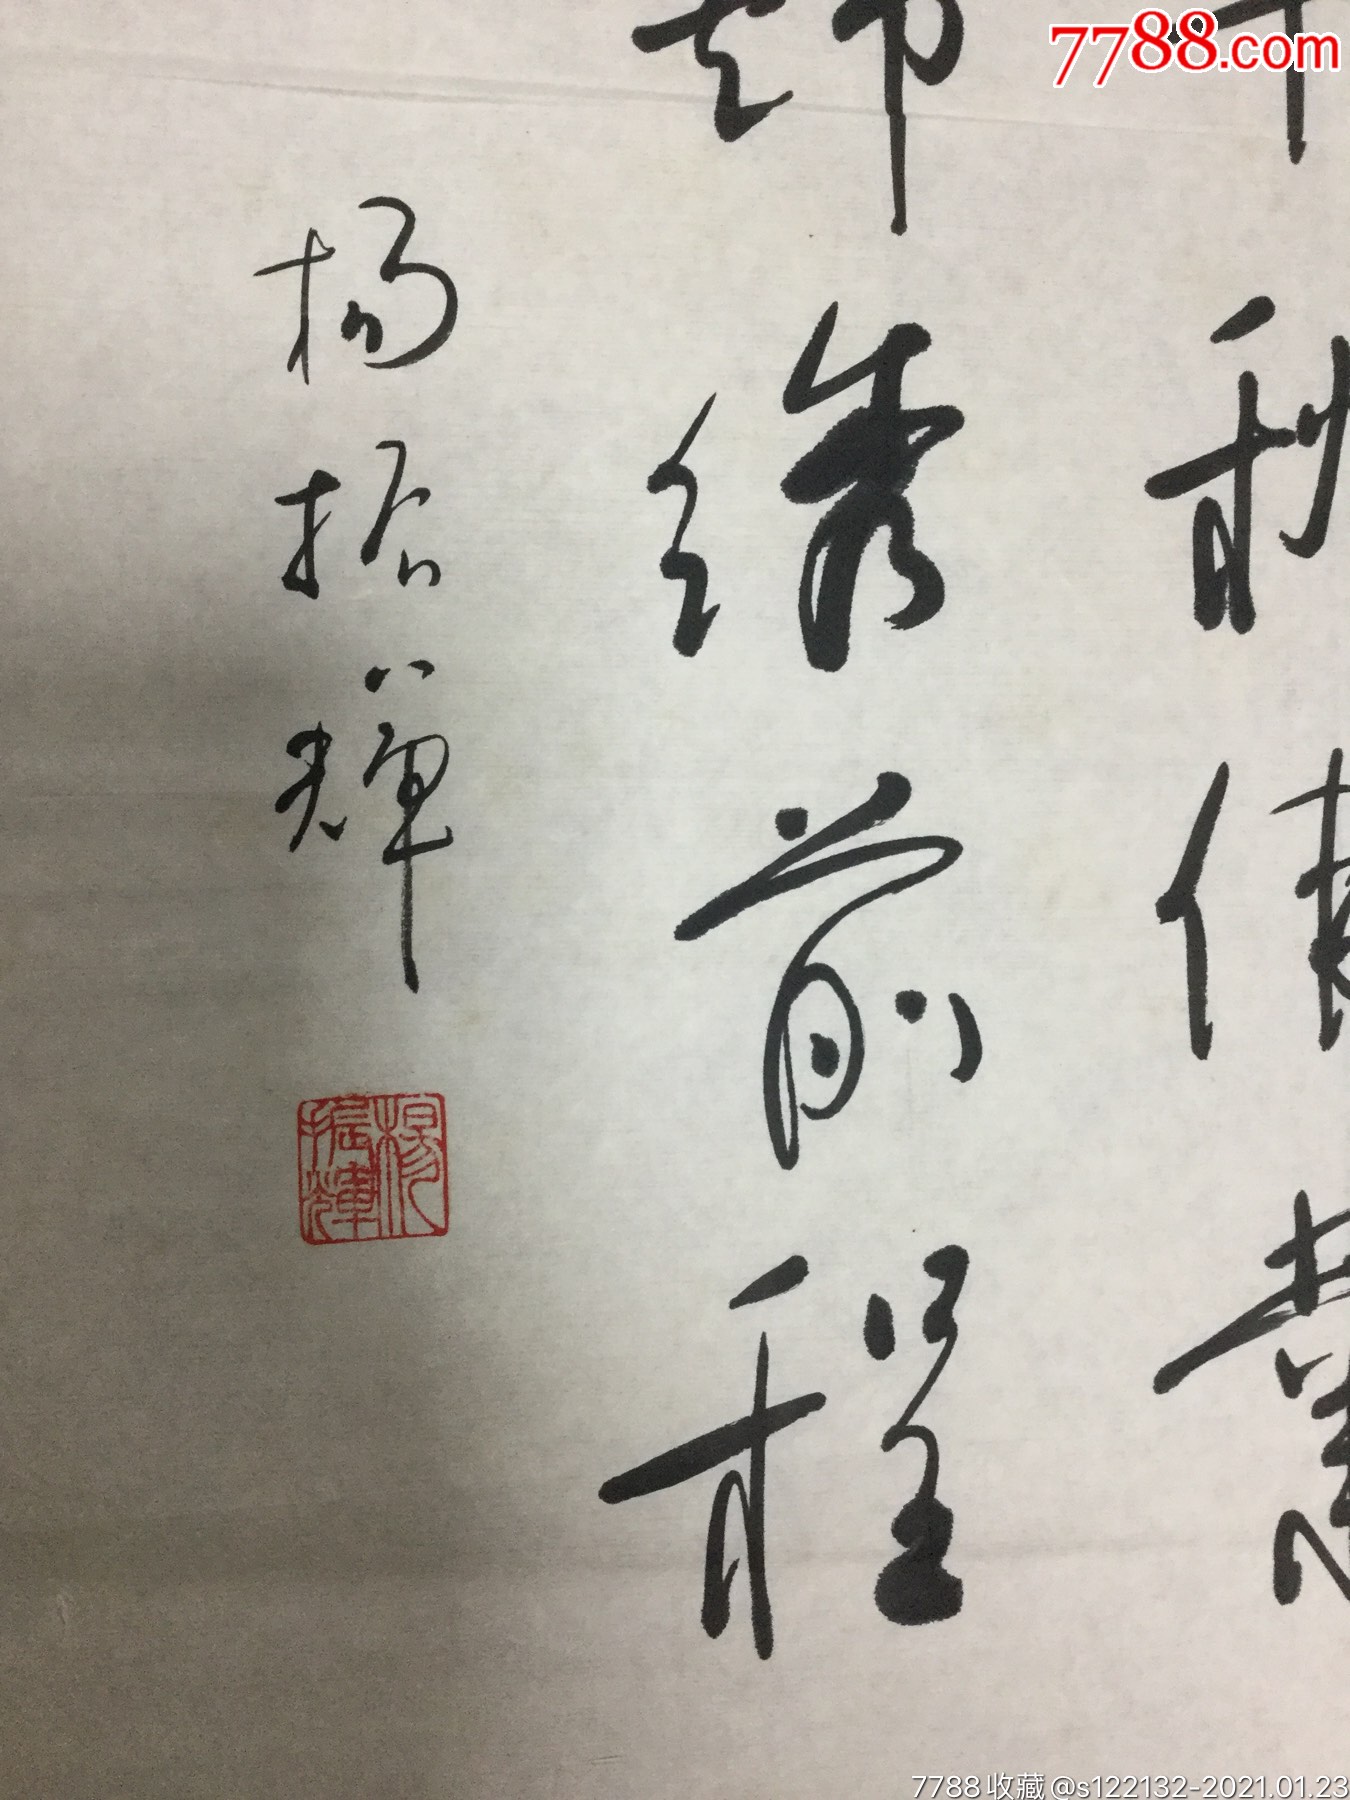 7788.com
秋偉業
锦绣前程
杨振輝
楊振輝
7788收藏@s122132-2021.01.23